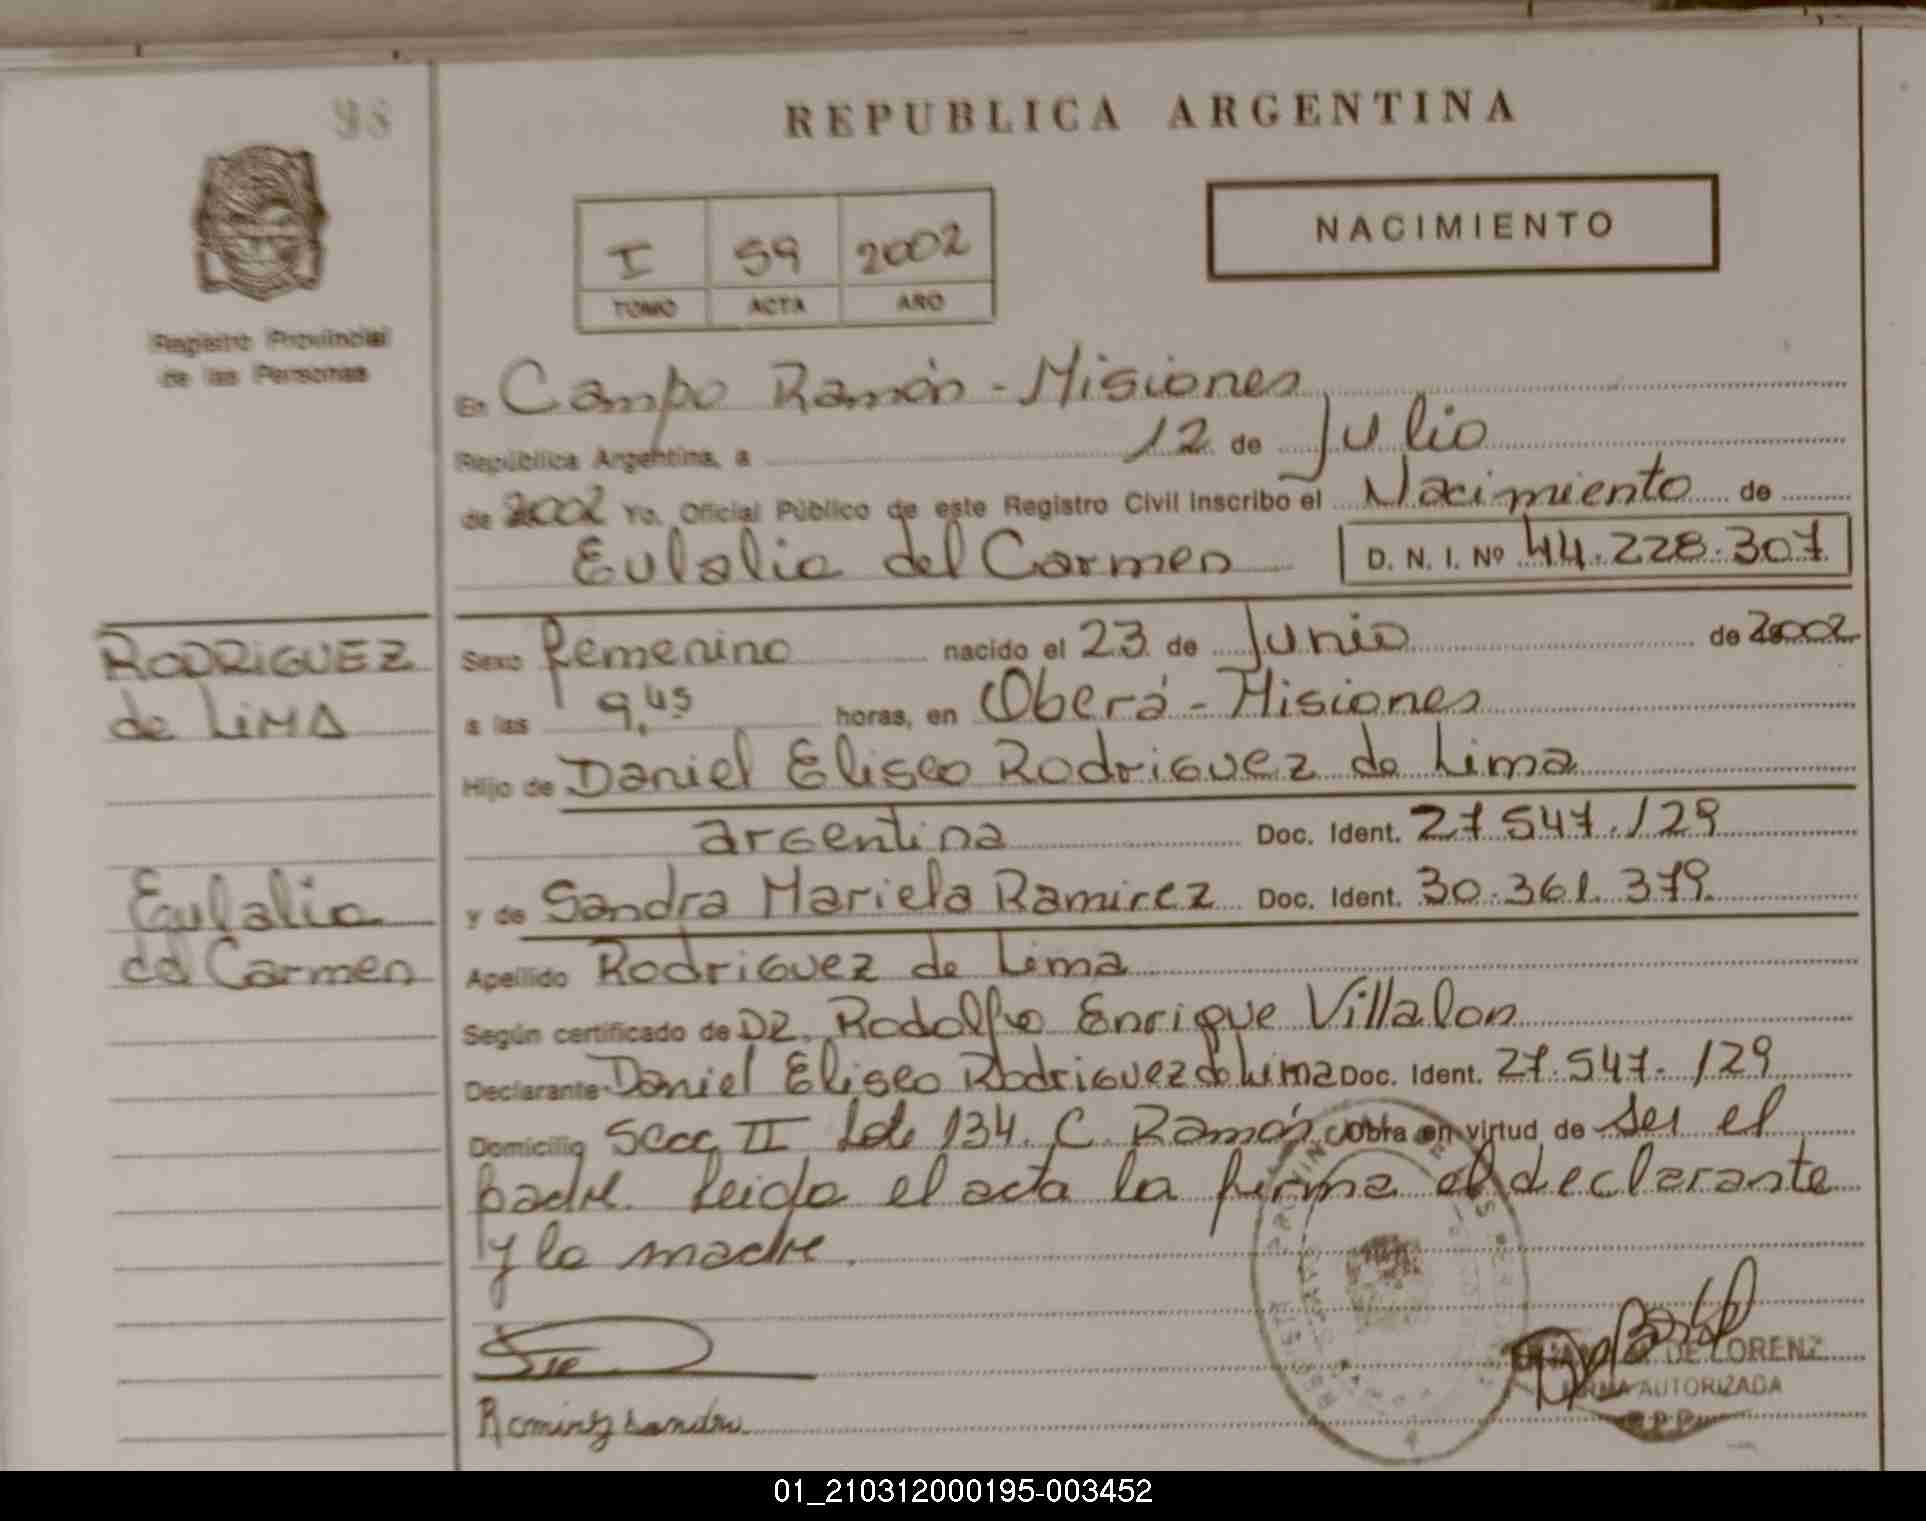 98
REPUBLICA ARGENTINA
NACIMIENTO
I 59 2002
TOMO ACTA AÑO
Registro Provincial
de las Personas
En Campo Ramón - Misiones
República Argentina, a 12 de Julio
de 2002 Yo, Oficial Público de este Registro Civil Inscribo el Nacimiento de
Eulalia del Carmen D. N. I. Nº 44.228.307
RODRIGUEZ
de LiMA
Eulalia
del Carmen
Sexo femenino nacido el 23 de Junio de 2002
a las 9,45 horas, en Oberá - Misiones
Hijo de Daniel Eliseo Rodriguez de Lima
argentina Doc. Ident. 27.547.129
y de Sandra Mariela Ramirez Doc. Ident. 30.361.379
Apellido Rodriguez de Lima
Según certificado de DR. Rodolfo Enrique Villalon
Declarante Daniel Eliseo Rodriguez de Lima Doc. Ident. 27.547.129
Domicilio Secc II Lote 134. C. Ramón Obra en virtud de ser el
padre. Leida el acta la firma el declarante
y la madre.
DE LORENZ
FIRMA AUTORIZADA
R.P.P.
Ramirez Sandra
01_210312000195-003452